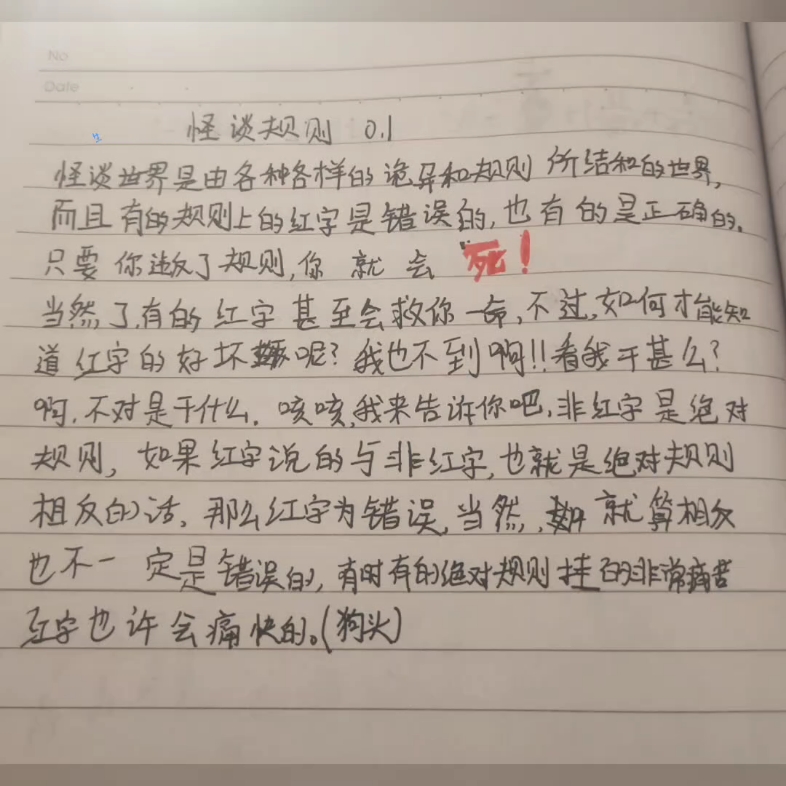 No
Date
怪谈规则 0.1
怪谈世界是由各种各样的诡异和规则所结和的世界,
而且有的规则上的红字是错误的,也有的是正确的。
只要你违反了规则,你就会死!
当然了,有的红字甚至会救你一命,不过,如何才能知
道红字的好坏呢?我也不到啊!!看我干甚么?
啊,不对是干什么.咳咳,我来告诉你吧,非红字是绝对
规则,如果红字说的与非红字,也就是绝对规则
相反的话,那么红字为错误,当然,就算相反
也不一定是错误的,有时有的绝对规则挂的非常痛苦
红字也许会痛快的。(狗头)